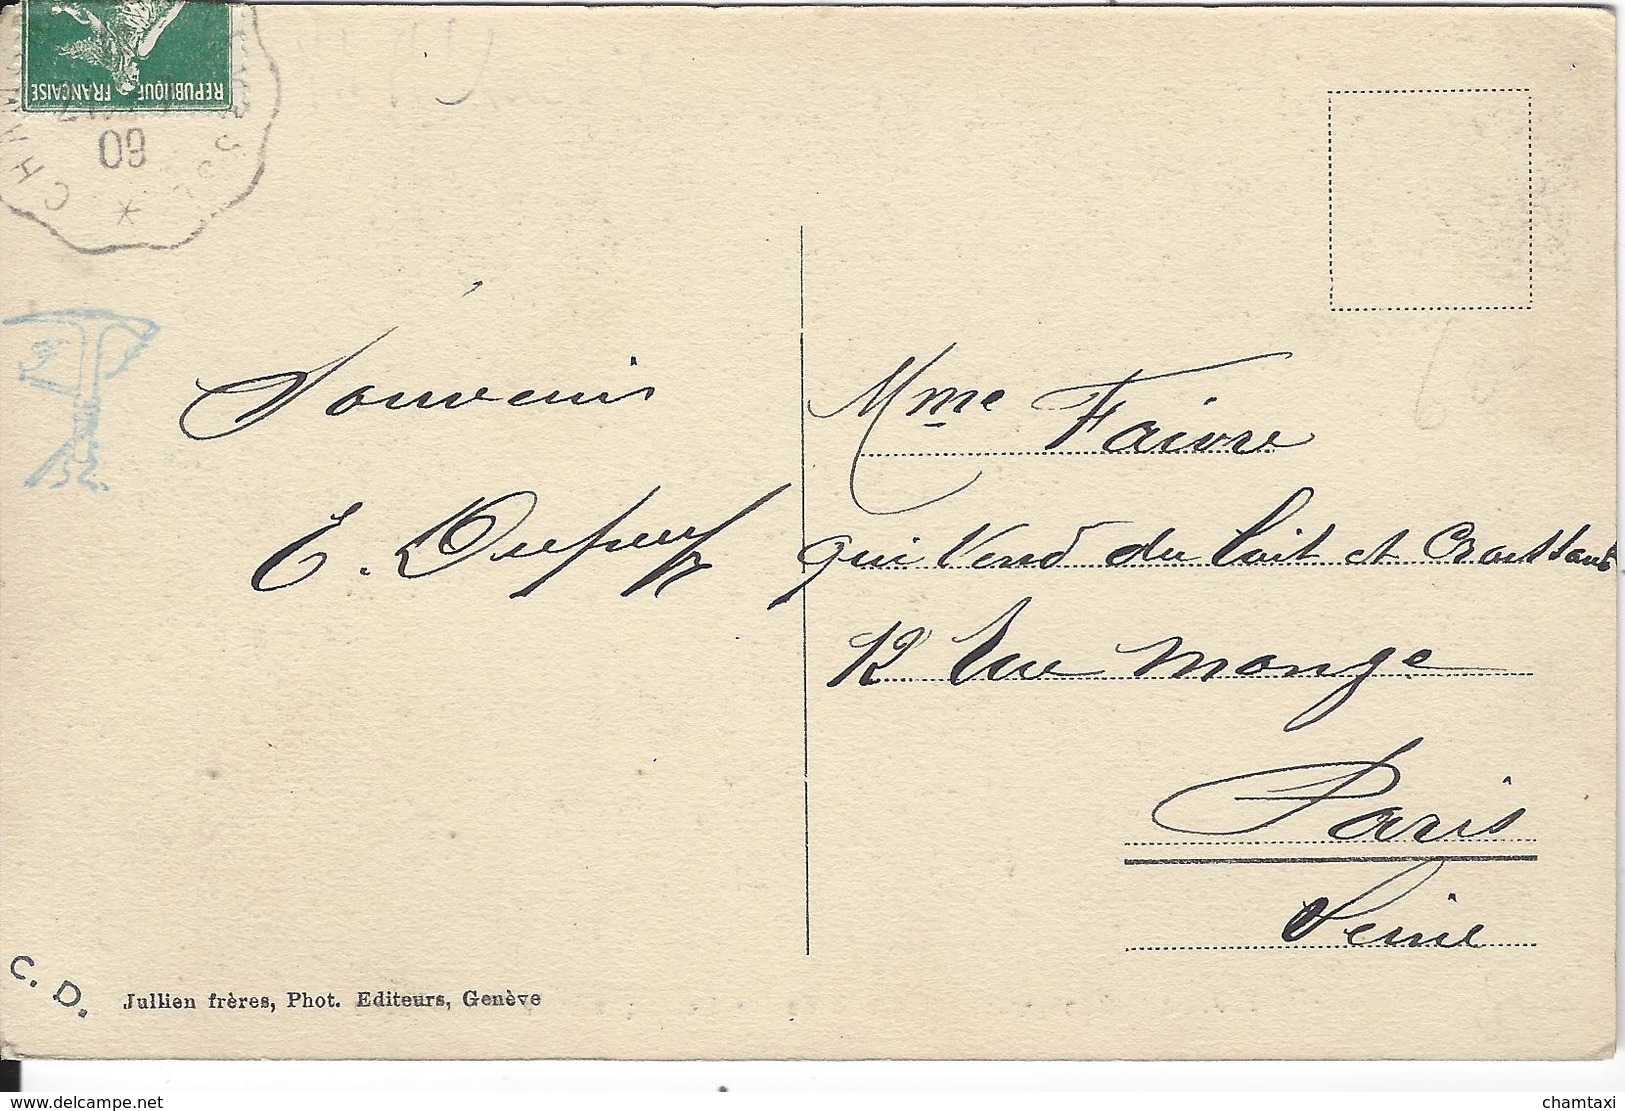 REPUBLIQUE FRANÇAISE
09
Souvenir
E. Dupuy
Mme Faivre
qui Vend du lait et Croissants
12 Rue Monge
Paris
Seine
C. D.
Jullien frères, Phot. Editeurs, Genève
www.delcampe.net
chamtaxi